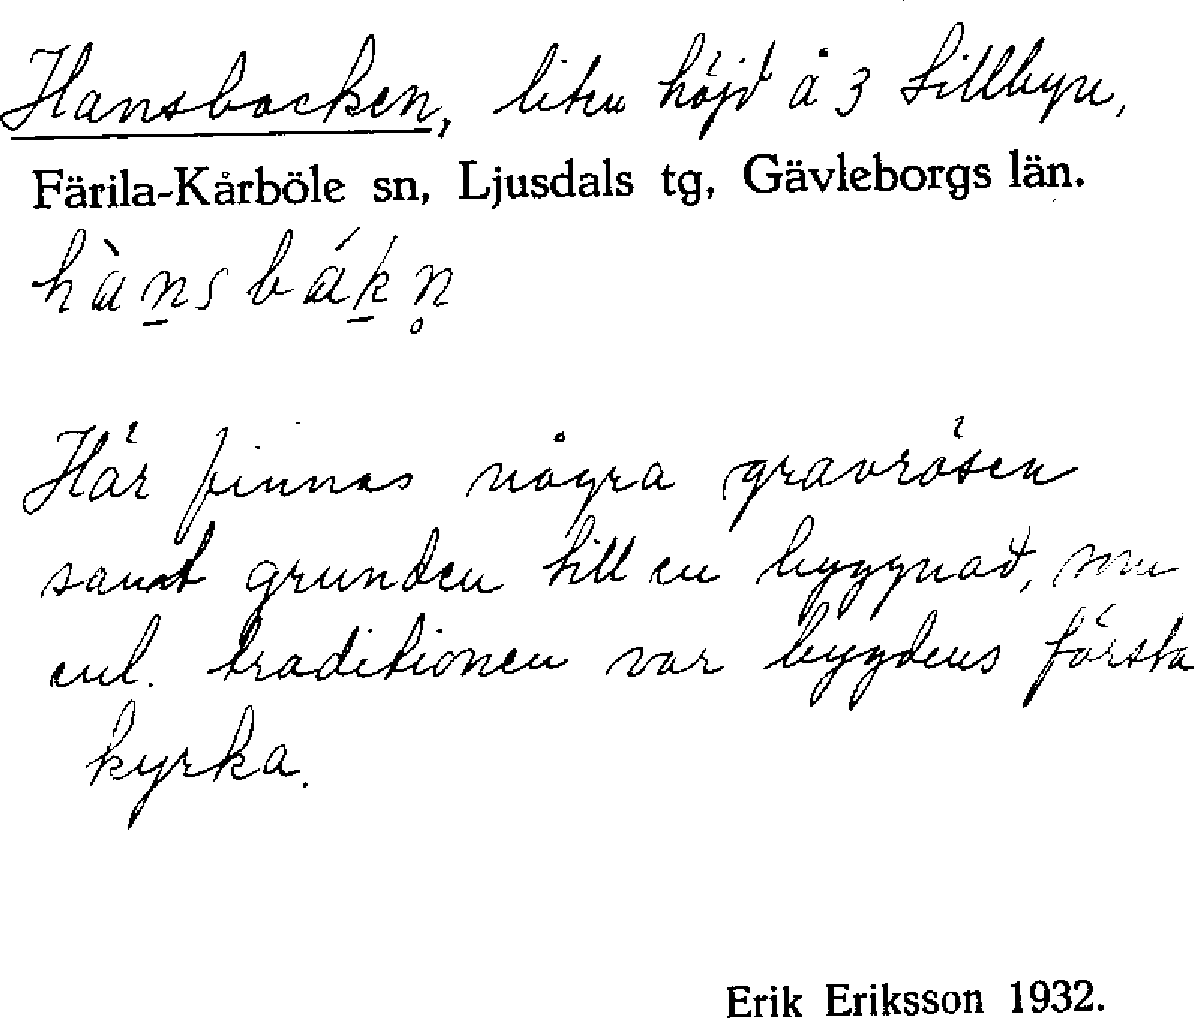 Hansbacken, liten höjd å 3 Lillbyn,
Färila-Kårböle sn, Ljusdals tg, Gävleborgs län.
hànsbákn̥
Här finnas några gravrösen
samt grunden till en byggnad, som
enl. traditionen var bygdens första
kyrka.
Erik Eriksson 1932.